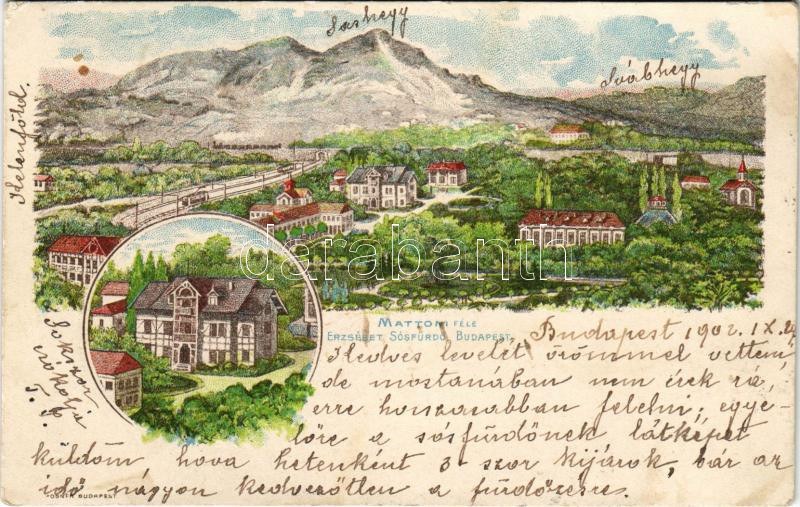 Sashegy
Svábhegy
Kelenföld.
darabanth
MATTONI FÉLE
ERZSÉBET SÓSFÜRDŐ, BUDAPEST.
Budapest 1902. IX.
Kedves levelét örömmel vettem,
de mostanában nem érek rá,
erre hosszasabban felelni; egye-
lőre a sósfürdőnek látképét
küldöm hova hetenként 3-szor kijárok, bár az
idő nagyon kedvezőtlen a fürdőzésre.
Sokszor
csókolja
POSNER BUDAPEST